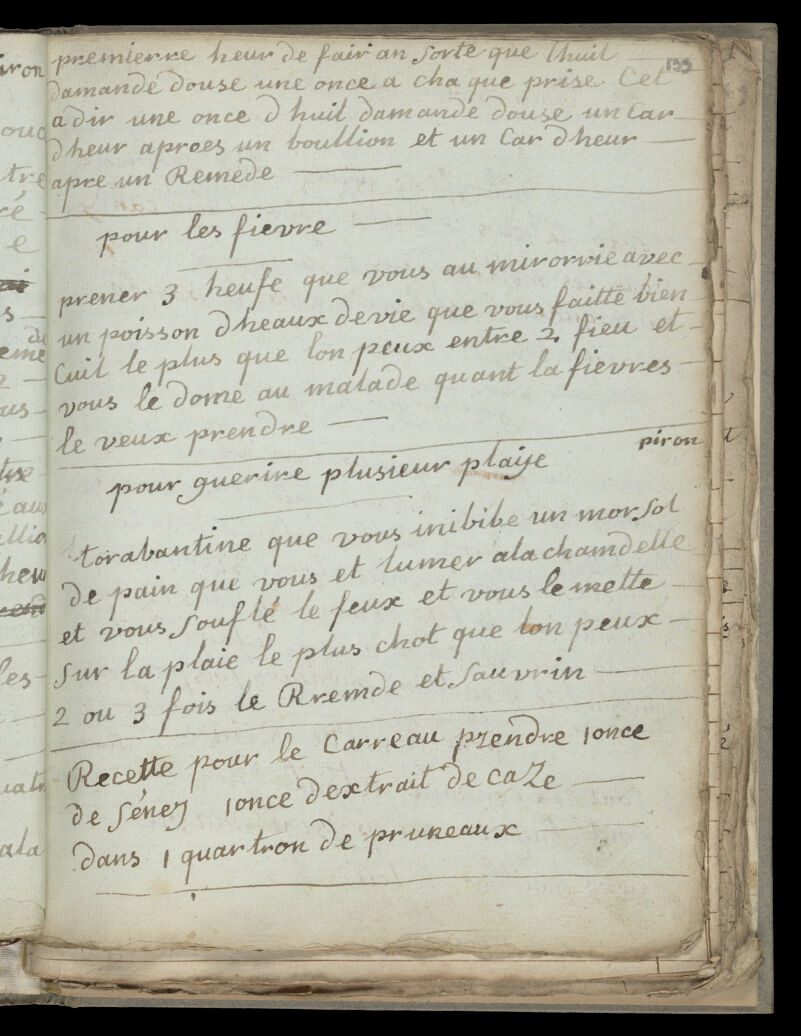 premierre heur de fair an sorte que lhuil
139
damande douse une once a cha que prise Cet
adir une once dhuil damande douse un Car
dheur aproes un boullion et un Car dheur
apre un Remede
pour les fievre
prener 3 heufe que vous au mirorvie avec
un poisson dheaux devie que vous faitte bien
Cuil le plus que lon peux entre 2 fieu et
vous le dome au malade quant la fievres
le veux prendre
piron
pour guerire plusieur plaije
torabantine que vous inibibe un morsol
de pain que vous et lumer ala chamdelle
et vous souflé le feux et vous le mette
sur la plaie le plus chot que lon peux
2 ou 3 fois le Rremde et sauvrin
Recette pour le Carreau prendre 1once
de séney 1once dextrait de caze
dans 1 quartron de pruneaux